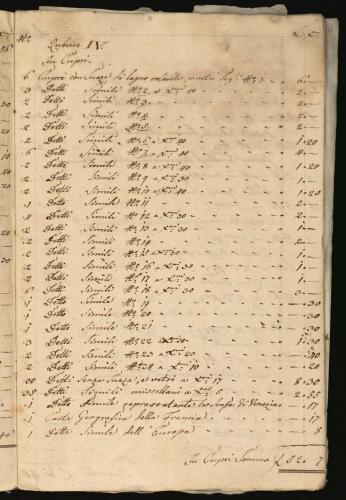 No. £ Xni
Rubrica IV.
In Cupri.
6 Cupri con Suaze di legno e vetri No. 1 - - 6 -
3 Detti Simili No. 2 a Xni 40 - - 2 -
2 Detti Simili No. 3 - - 2 -
2 Detti Simili No. 4 - - 2 -
2 Detti Simili No. 5 - - 2 -
2 Detti Simili No. 6 a Xni 40 - - 1 - 20
6 Detti Simili No. 7 a Xni 40 - - 4 -
2 Detti Simili No. 8 a Xni 40 - - 1 - 20
2 Detti Simili No. 9 a Xni 30 - - 1 -
2 Detti Simili No. 10 a Xni 40 - - 1 - 20
1 Detti Simili No. 11 - - 2 -
4 Detti Simili No. 12 a Xni 30 - - 2 -
2 Detti Simili No. 13 a Xni 30 - - 1 -
2 Detti Simili No. 14 - - 2 -
2 Detti Simili No. 15 a Xni 30 - - 1 -
2 Detti Simili No. 16 a Xni 30 - - 1 -
2 Detti Simili No. 17 a Xni 30 - - 1 -
6 Detti Simili No. 18 a Xni 30 - - 3 -
1 Detto Simile No. 19 - - 30
1 Detto Simile No. 20 - - 30
1 Detto Simile No. 21 - - 30
3 Detti Simili No. 22 a Xni 30 - - 1 - 30
2 Detti Simili No. 23 a Xni 20 - - 40
2 Detti Simili No. 24 a Xni 10 - - 20
30 Detti Senza Suaza, e vetri a Xni 17 - - 8 - 30
35 Detti Simili miscellanei a Xni 5 - - 2 - 55
1 Detto Simile representante la Sensa di Venezia - 17
1 Carta Geografica della Francia - - 17
1 Detta Simile dell' Europa - - 8
In Cupri Somma £ 52 - 7